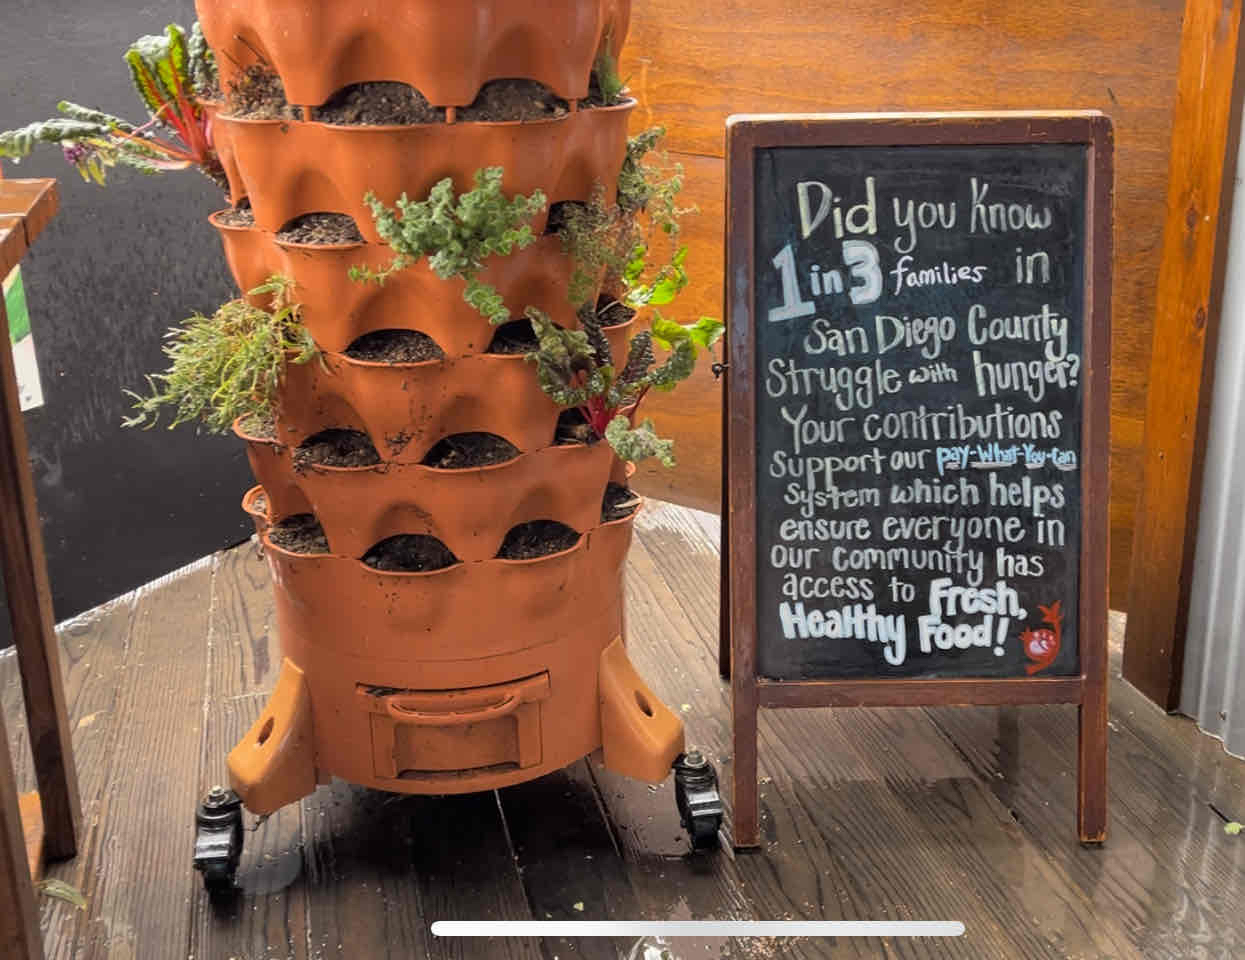 Did you Know
1 in 3 families in
San Diego County
Struggle with hunger?
Your contributions
support our pay-What-You-Can
System which helps
ensure everyone in
our community has
access to Fresh,
Healthy Food!